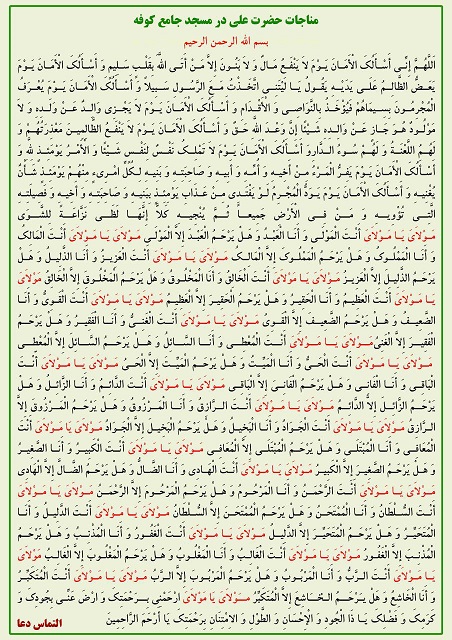 مناجات حضرت علی در مسجد جامع کوفه
بسم الله الرحمن الرحیم
اَللّهُمَّ إِنّی أَسْأَلُکَ الْأَمَانَ یَوْمَ لَا یَنْفَعُ مَالٌ وَ لَا بَنُونَ إِلاَّ مَنْ أَتَی اللَّهَ بِقَلْبٍ سَلِیمٍ وَ أَسْأَلُکَ الْأَمَانَ یَوْمَ
یَعَضُّ الظَّالِمُ عَلَی یَدَیْهِ یَقُولُ یَا لَیْتَنِی اتَّخَذْتُ مَعَ الرَّسُولِ سَبِیلاً وَ أَسْأَلُکَ الْأَمَانَ یَوْمَ یُعْرَفُ
الْمُجْرِمُونَ بِسِیمَاهُمْ فَیُؤْخَذُ بِالنَّوَاصِی وَ الْأَقْدَامِ وَ أَسْأَلُکَ الْأَمَانَ یَوْمَ لَا یَجْزِی وَالِدٌ عَنْ وَلَدِهِ وَ لَا
مَوْلُودٌ هُوَ جَازٍ عَنْ وَالِدِهِ شَیْئًا إِنَّ وَعْدَ اللَّهِ حَقٌّ وَ أَسْأَلُکَ الْأَمَانَ یَوْمَ لَا یَنْفَعُ الظَّالِمِینَ مَعْذِرَتُهُمْ وَ
لَهُمُ اللَّعْنَةُ وَ لَهُمْ سُوءُ الدَّارِ وَ أَسْأَلُکَ الْأَمَانَ یَوْمَ لَا تَمْلِکُ نَفْسٌ لِنَفْسٍ شَیْئًا وَ الْأَمْرُ یَوْمَئِذٍ لِلَّهِ وَ
أَسْأَلُکَ الْأَمَانَ یَوْمَ یَفِرُّ الْمَرْءُ مِنْ أَخِیهِ وَ أُمِّهِ وَ أَبِیهِ وَ صَاحِبَتِهِ وَ بَنِیهِ لِکُلِّ امْرِیءٍ مِنْهُمْ یَوْمَئِذٍ شَأْنٌ
یُغْنِیهِ وَ أَسْأَلُکَ الْأَمَانَ یَوْمَ یَوَدُّ الْمُجْرِمُ لَوْ یَفْتَدِی مِنْ عَذَابِ یَوْمَئِذٍ بِبَنِیهِ وَ صَاحِبَتِهِ وَ أَخِیهِ وَ فَصِیلَتِهِ
الَّتِی تُؤْوِیهِ وَ مَنْ فِی الْأَرْضِ جَمِیعاً ثُمَّ یُنْجِیهِ کَلاَّ إِنَّهَا لَظَی نَزَّاعَةً لِلشَّوَی
مَوْلَایَ یَا مَوْلَایَ أَنْتَ الْمَوْلَی وَ أَنَا الْعَبْدُ وَ هَلْ یَرْحَمُ الْعَبْدَ إِلاَّ الْمَوْلَی مَوْلَایَ یَا مَوْلَایَ أَنْتَ الْمَالِکُ
وَ أَنَا الْمَمْلُوکُ وَ هَلْ یَرْحَمُ الْمَمْلُوکَ إِلاَّ الْمَالِکُ مَوْلَایَ یَا مَوْلَایَ أَنْتَ الْعَزِیزُ وَ أَنَا الذَّلِیلُ وَ هَلْ
یَرْحَمُ الذَّلِیلَ إِلاَّ الْعَزِیزُ مَوْلَایَ یَا مَوْلَایَ أَنْتَ الْخَالِقُ وَ أَنَا الْمَخْلُوقُ وَ هَلْ یَرْحَمُ الْمَخْلُوقَ إِلاَّ الْخَالِقُ مَوْلَایَ
یَا مَوْلَایَ أَنْتَ الْعَظِیمُ وَ أَنَا الْحَقِیرُ وَ هَلْ یَرْحَمُ الْحَقِیرَ إِلاَّ الْعَظِیمُ مَوْلَایَ یَا مَوْلَایَ أَنْتَ الْقَوِیُّ وَ أَنَا
الضَّعِیفُ وَ هَلْ یَرْحَمُ الضَّعِیفَ إِلاَّ الْقَوِیُّ مَوْلَایَ یَا مَوْلَایَ أَنْتَ الْغَنِیُّ وَ أَنَا الْفَقِیرُ وَ هَلْ یَرْحَمُ
الْفَقِیرَ إِلاَّ الْغَنِیُّ مَوْلَایَ یَا مَوْلَایَ أَنْتَ الْمُعْطِی وَ أَنَا السَّائِلُ وَ هَلْ یَرْحَمُ السَّائِلَ إِلاَّ الْمُعْطِی
مَوْلَایَ یَا مَوْلَایَ أَنْتَ الْحَیُّ وَ أَنَا الْمَیِّتُ وَ هَلْ یَرْحَمُ الْمَیِّتَ إِلاَّ الْحَیُّ مَوْلَایَ یَا مَوْلَایَ أَنْتَ
الْبَاقِی وَ أَنَا الْفَانِی وَ هَلْ یَرْحَمُ الْفَانِیَ إِلاَّ الْبَاقِی مَوْلَایَ یَا مَوْلَایَ أَنْتَ الدَّائِمُ وَ أَنَا الزَّائِلُ وَ هَلْ
یَرْحَمُ الزَّائِلَ إِلاَّ الدَّائِمُ مَوْلَایَ یَا مَوْلَایَ أَنْتَ الرَّازِقُ وَ أَنَا الْمَرْزُوقُ وَ هَلْ یَرْحَمُ الْمَرْزُوقَ إِلاَّ
الرَّازِقُ مَوْلَایَ یَا مَوْلَایَ أَنْتَ الْجَوَادُ وَ أَنَا الْبَخِیلُ وَ هَلْ یَرْحَمُ الْبَخِیلَ إِلاَّ الْجَوَادُ مَوْلَایَ یَا مَوْلَایَ أَنْتَ
الْمُعَافِی وَ أَنَا الْمُبْتَلَی وَ هَلْ یَرْحَمُ الْمُبْتَلَی إِلاَّ الْمُعَافِی مَوْلَایَ یَا مَوْلَایَ أَنْتَ الْکَبِیرُ وَ أَنَا الصَّغِیرُ
وَ هَلْ یَرْحَمُ الصَّغِیرَ إِلاَّ الْکَبِیرُ مَوْلَایَ یَا مَوْلَایَ أَنْتَ الْهَادِی وَ أَنَا الضَّالُّ وَ هَلْ یَرْحَمُ الضَّالَّ إِلاَّ الْهَادِی
مَوْلَایَ یَا مَوْلَایَ أَنْتَ الرَّحْمَنُ وَ أَنَا الْمَرْحُومُ وَ هَلْ یَرْحَمُ الْمَرْحُومَ إِلاَّ الرَّحْمَنُ مَوْلَایَ یَا مَوْلَایَ
أَنْتَ السُّلْطَانُ وَ أَنَا الْمُمْتَحَنُ وَ هَلْ یَرْحَمُ الْمُمْتَحَنَ إِلاَّ السُّلْطَانُ مَوْلَایَ یَا مَوْلَایَ أَنْتَ الدَّلِیلُ وَ أَنَا
الْمُتَحَیِّرُ وَ هَلْ یَرْحَمُ الْمُتَحَیِّرَ إِلاَّ الدَّلِیلُ مَوْلَایَ یَا مَوْلَایَ أَنْتَ الْغَفُورُ وَ أَنَا الْمُذْنِبُ وَ هَلْ یَرْحَمُ
الْمُذْنِبَ إِلاَّ الْغَفُورُ مَوْلَایَ یَا مَوْلَایَ أَنْتَ الْغَالِبُ وَ أَنَا الْمَغْلُوبُ وَ هَلْ یَرْحَمُ الْمَغْلُوبَ إِلاَّ الْغَالِبُ مَوْلَایَ
یَا مَوْلَایَ أَنْتَ الرَّبُّ وَ أَنَا الْمَرْبُوبُ وَ هَلْ یَرْحَمُ الْمَرْبُوبَ إِلاَّ الرَّبُّ مَوْلَایَ یَا مَوْلَایَ أَنْتَ الْمُتَکَبِّرُ
وَ أَنَا الْخَاشِعُ وَ هَلْ یَرْحَمُ الْخَاشِعَ إِلاَّ الْمُتَکَبِّرُ مَوْلَایَ یَا مَوْلَایَ ارْحَمْنِی بِرَحْمَتِکَ وَ ارْضَ عَنِّی بِجُودِکَ وَ
کَرَمِکَ وَ فَضْلِکَ یَا ذَا الْجُودِ وَ الْإِحْسَانِ وَ الطَّوْلِ وَ الاِمْتِنَانِ بِرَحْمَتِکَ یَا أَرْحَمَ الرَّاحِمِینَ
التماس دعا